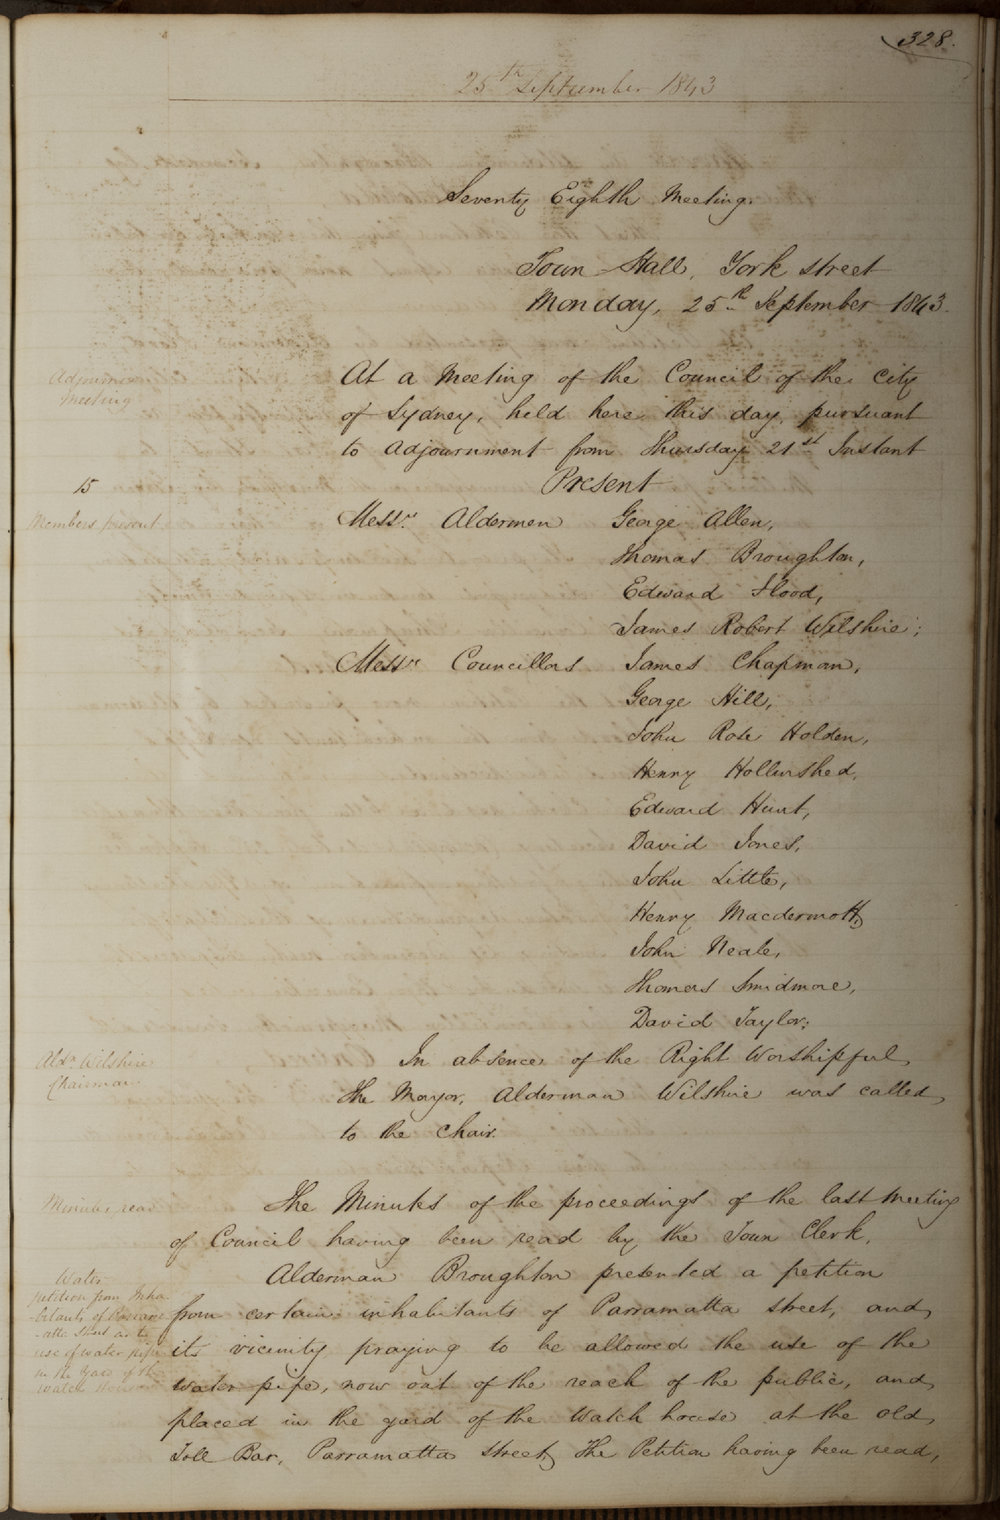 328.
25th September 1843
Seventy Eighth Meeting.
Town Hall, York street
Monday, 25th September 1843.
Adjourned
Meeting
At a Meeting of the Council of the City
of Sydney, held here this day, pursuant
to adjournment from Thursday 21st Instant
15
Present
Members present
Messrs. Aldermen George Allen,
Thomas Broughton,
Edward Flood,
James Robert Wilshire;
Messrs Councillors James Chapman,
George Hill,
John Rose Holden,
Henry Hollinshed,
Edward Hunt,
David Jones,
John Little,
Henry Macdermott,
John Neale,
Thomas Smidmore,
David Taylor;
Aldn. Wilshire
Chairman
In absence of the Right Worshipful
the Mayor, Alderman Wilshire was called
to the Chair.
Minutes read
The Minutes of the proceedings of the last Meeting
of Council having been read by the Town Clerk,
Alderman Broughton presented a petition
from certain inhabitants of Parramatta street, and
its vicinity praying to be allowed the use of the
water pipe, now out of the reach of the public, and
placed in the yard of the Watch house at the old
Toll Bar, Parramatta street, The Petition having been read,
Water
petition from Inha
-bitants of Parram
-atta Street as to
use of water pipe
in the Yard of the
Watch House